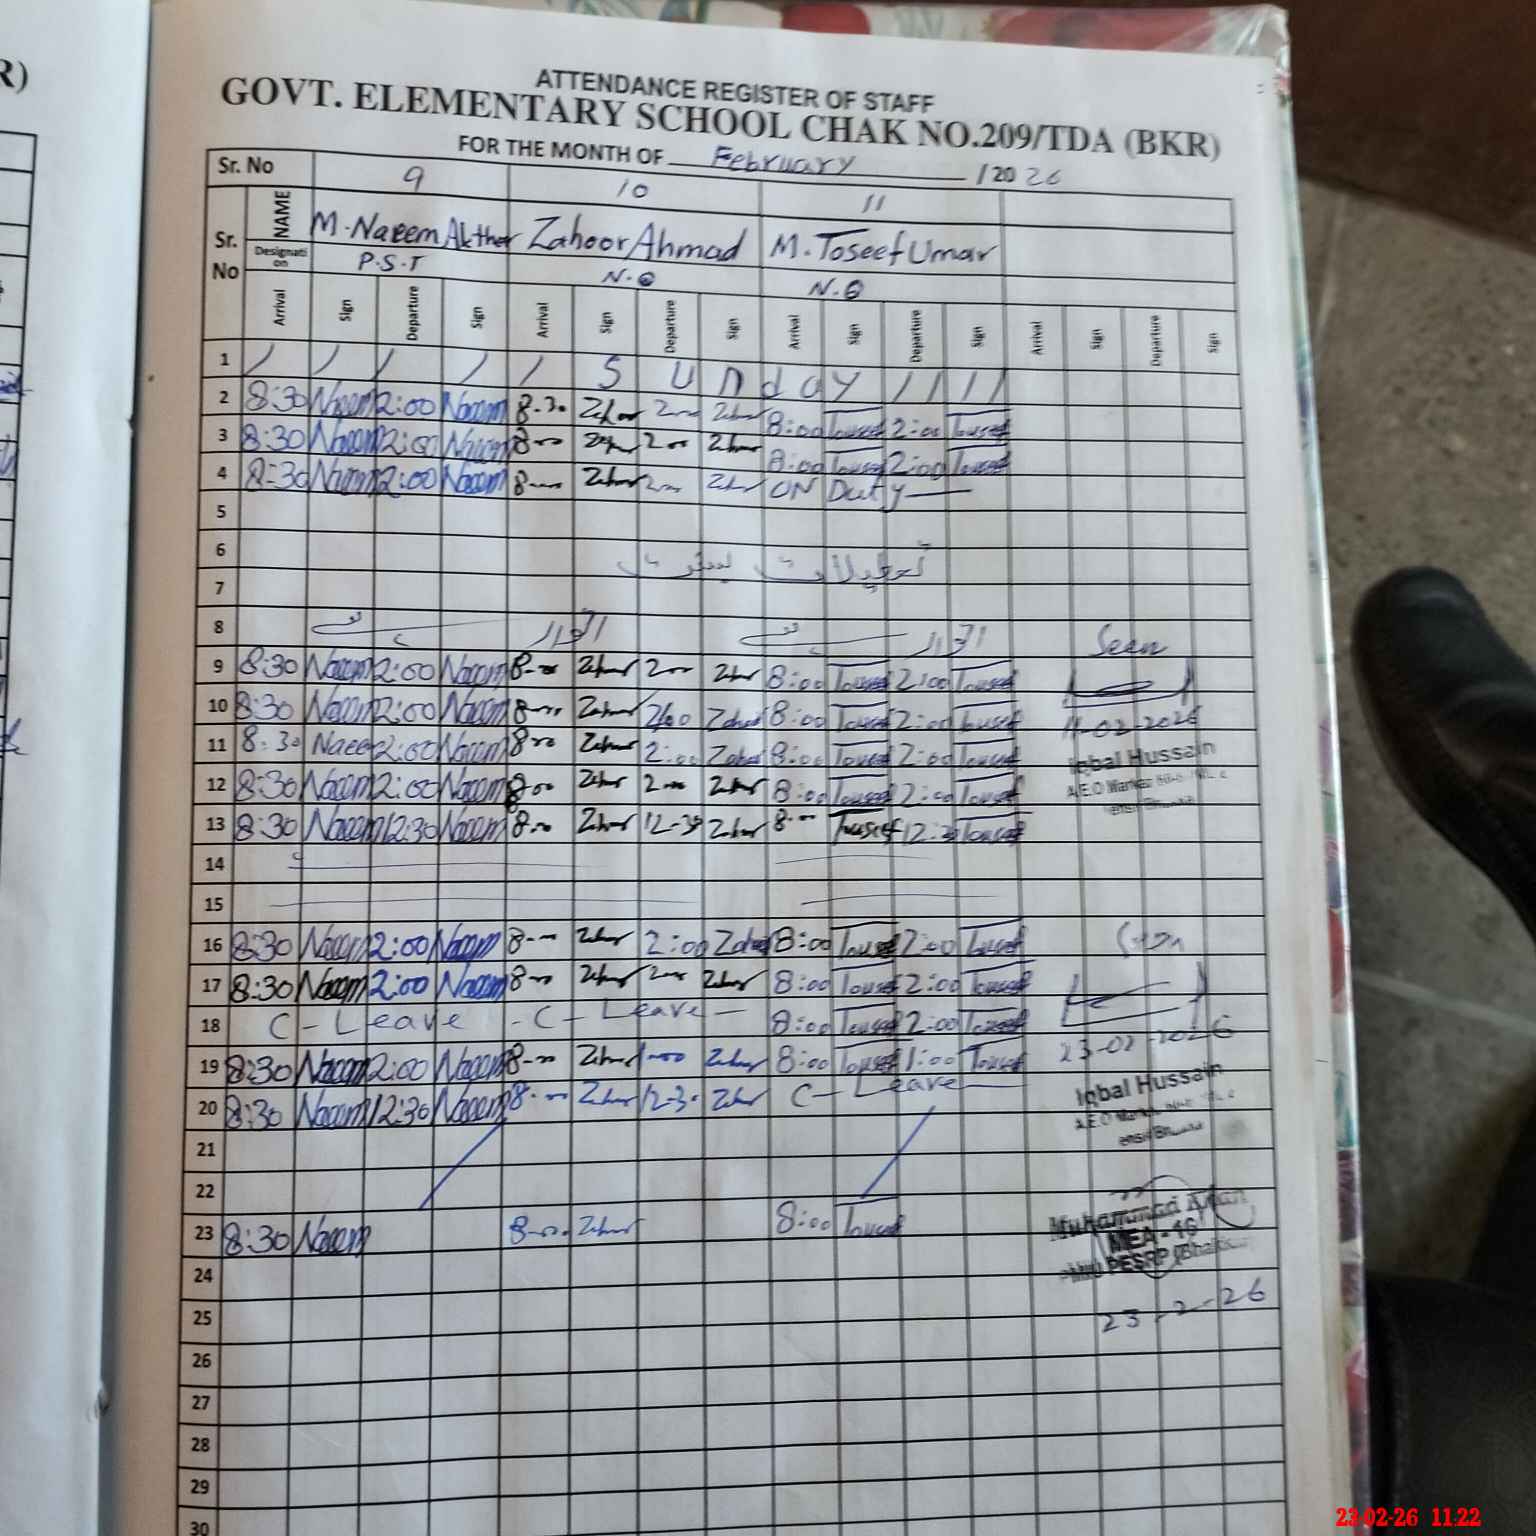 R)
ATTENDANCE REGISTER OF STAFF
GOVT. ELEMENTARY SCHOOL CHAK NO.209/TDA (BKR)
FOR THE MONTH OF February /2026
Sr. No 9 10 11
Sr. No NAME M. Naeem Akther Zahoor Ahmad M. Toseef Umar
Designation P.S.T N.Q N.Q
Arrival Sign Departure Sign Arrival Sign Departure Sign Arrival Sign Departure Sign Arrival Sign Departure Sign
1 / / / / / S U n d a y / / / /
2 8:30 Naeem 2:00 Naeem 8-30 Zahoor 2-00 Zahoor 8:00 Touseef 2:00 Touseef
3 8:30 Naeem 2:00 Naeem 8-00 Zahoor 2-00 Zahoor 8:00 Touseef 2:00 Touseef
4 8:30 Naeem 2:00 Naeem 8-00 Zahoor 2-00 Zahoor ON Duty
5
6 تعطیلات بسنت
7
8 اتوار اتوار Seen
9 8:30 Naeem 2:00 Naeem 8-00 Zahoor 2-00 Zahoor 8:00 Touseef 2:00 Touseef
10 8:30 Naeem 2:00 Naeem 8-00 Zahoor 2:00 Zahoor 8:00 Touseef 2:00 Touseef 11-02-2026
11 8:30 Naeem 2:00 Naeem 8-00 Zahoor 2:00 Zahoor 8:00 Touseef 2:00 Touseef Iqbal Hussain
12 8:30 Naeem 2:00 Naeem 8-00 Zahoor 2-00 Zahoor 8:00 Touseef 2:00 Touseef A.E.O Markaz
13 8:30 Naeem 12:30 Naeem 8-00 Zahoor 12-30 Zahoor 8-00 Touseef 12:30 Touseef
14
15
16 8:30 Naeem 2:00 Naeem 8-00 Zahoor 2:00 Zahoor 8:00 Touseef 2:00 Touseef Seen
17 8:30 Naeem 2:00 Naeem 8-00 Zahoor 2-00 Zahoor 8:00 Touseef 2:00 Touseef
18 C-Leave - C-Leave - 8:00 Touseef 2:00 Touseef 23-02-2026
19 8:30 Naeem 2:00 Naeem 8-00 Zahoor 1-00 Zahoor 8:00 Touseef 1:00 Touseef Iqbal Hussain
20 8:30 Naeem 12:30 Naeem 8-00 Zahoor 12-30 Zahoor C-Leave A.E.O
21
22
23 8:30 Naeem 8-00 Zahoor 8:00 Touseef Muhammad
MEA-16
PESRP
24
25 23-2-26
26
27
28
29
30
23-02-26 11:22